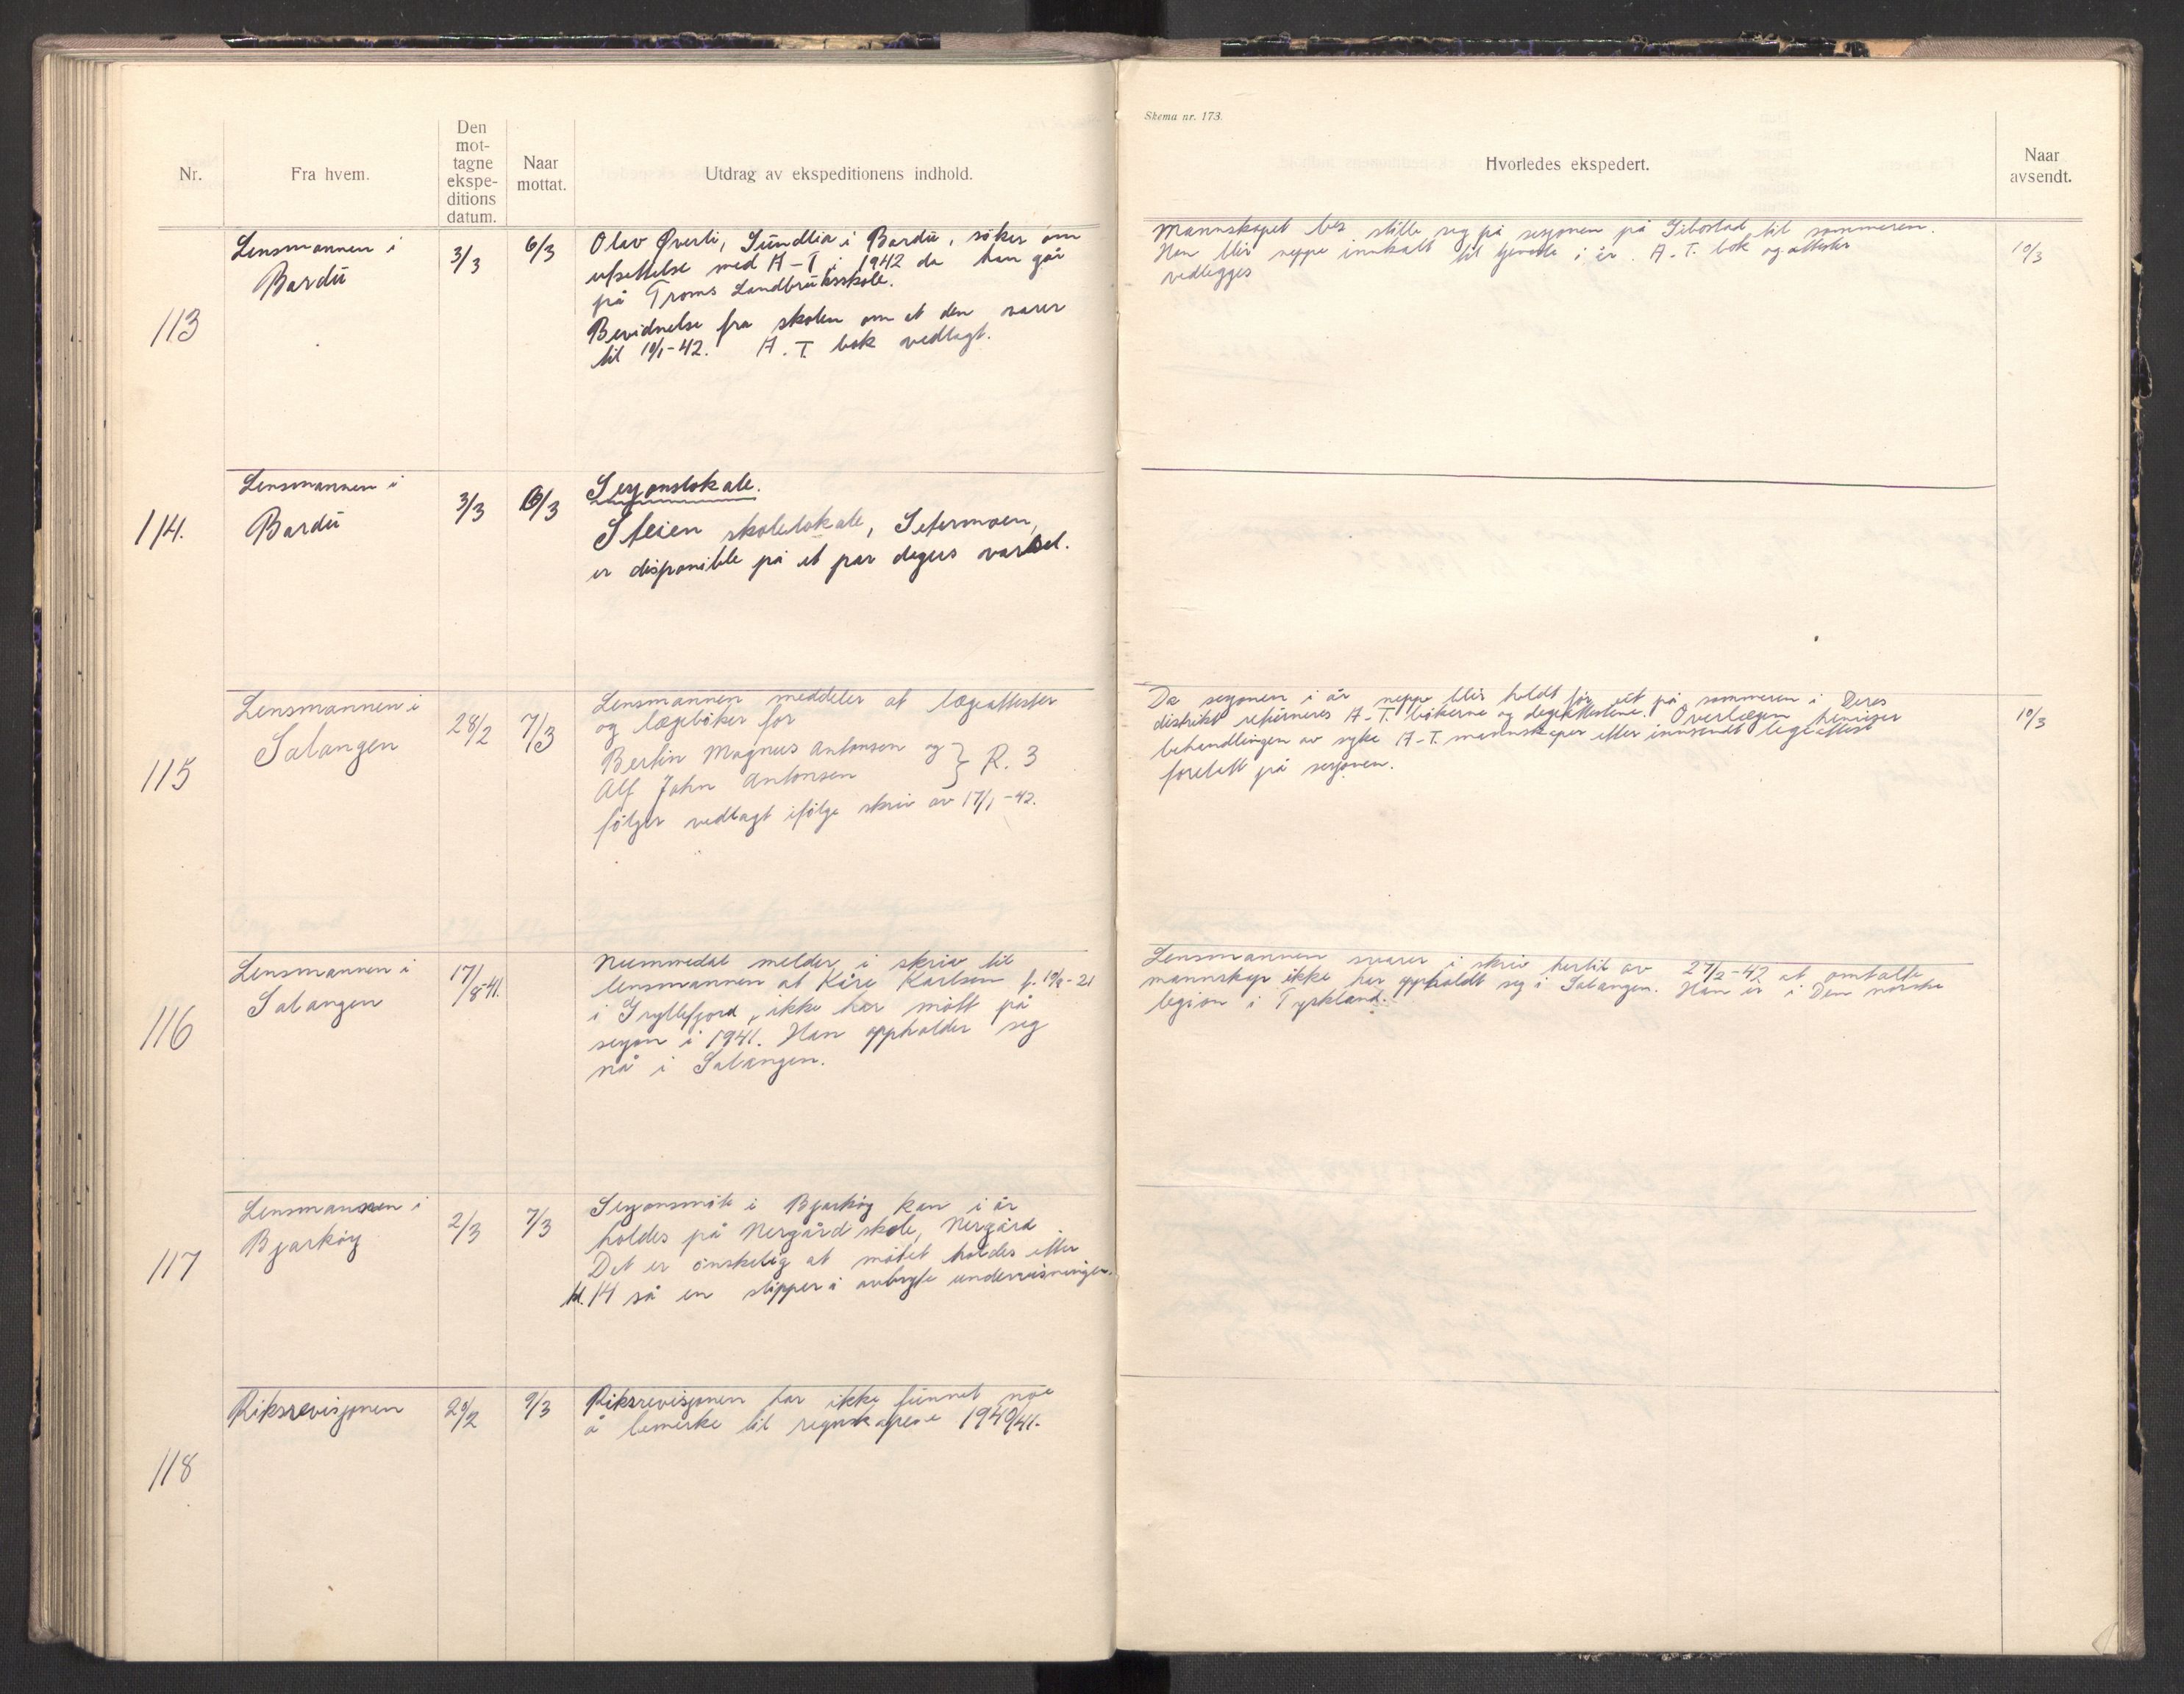 Skema nr. 173.
Nr.
Fra hvem.
Den
mot-
tagne
ekspe-
ditions
datum.
Naar
mottat.
Utdrag av ekspeditionens indhold.
Hvorledes ekspedert.
Naar
avsendt.
113
Lensmannen i
Bardu
3/3
6/3
Olav Øverli, Sundlia i Bardu, söker om
utsettelse med A-T i 1942 da han går
på Troms Landbruksskole.
Bevidnelse fra skolen om at den varer
til 10/1-42. A.T. bok vedlagt.
Mannskapet bes stille seg på sesjonen på Gibostad til sommeren.
Han blir neppe innkalt til tjeneste i år. A.T. bok og attester
vedlegges
10/3
114.
Lensmannen i
Bardu
3/3
6/3
Sesjonslokale.
Steien skolelokale, Setermoen,
er disponible på et par dagers varsel.
115
Lensmannen i
Salangen
28/2
7/3
Lensmannen meddeler at lægeattester
og lægeböker for
Bertin Magnus Antonsen og
Alf John Antonsen } R. 3
fölger vedlagt ifölge skriv av 17/1-42.
Da sesjonen i år neppe blir holdt för ut på sommeren i Deres
distrikt returneres A-T. bökerne og legeattestene. Overlægen henviser
behandlingen av syke A-T. mannskaper etter innsendt legeattest
foretatt på sesjonen.
10/3
116
Lensmannen i
Salangen
17/8-41.
Nummedal melder i skriv til
lensmannen at Kåre Karlsen f. 19/8-21
i Gryllefjord, ikke har mött på
sesjon i 1941. Han oppholder seg
nå i Salangen.
Lensmannen svarer i skriv hertil av 27/2-42 at omtalte
mannskap ikke har oppholdt seg i Salangen. Han er i Den norske
legion i Tyskland.
117
Lensmannen i
Bjarköy
2/3
7/3
Sesjonsmöte i Bjarköy kan i år
holdes på Nergård skole, Nergård.
Det er önskelig at mötet holdes etter
kl. 14 så en slipper å avbryte undervisningen.
118
Riksrevisjonen
20/2
9/3
Riksrevisjonen har ikke funnet noe
å bemerke til regnskapene 1940/41.